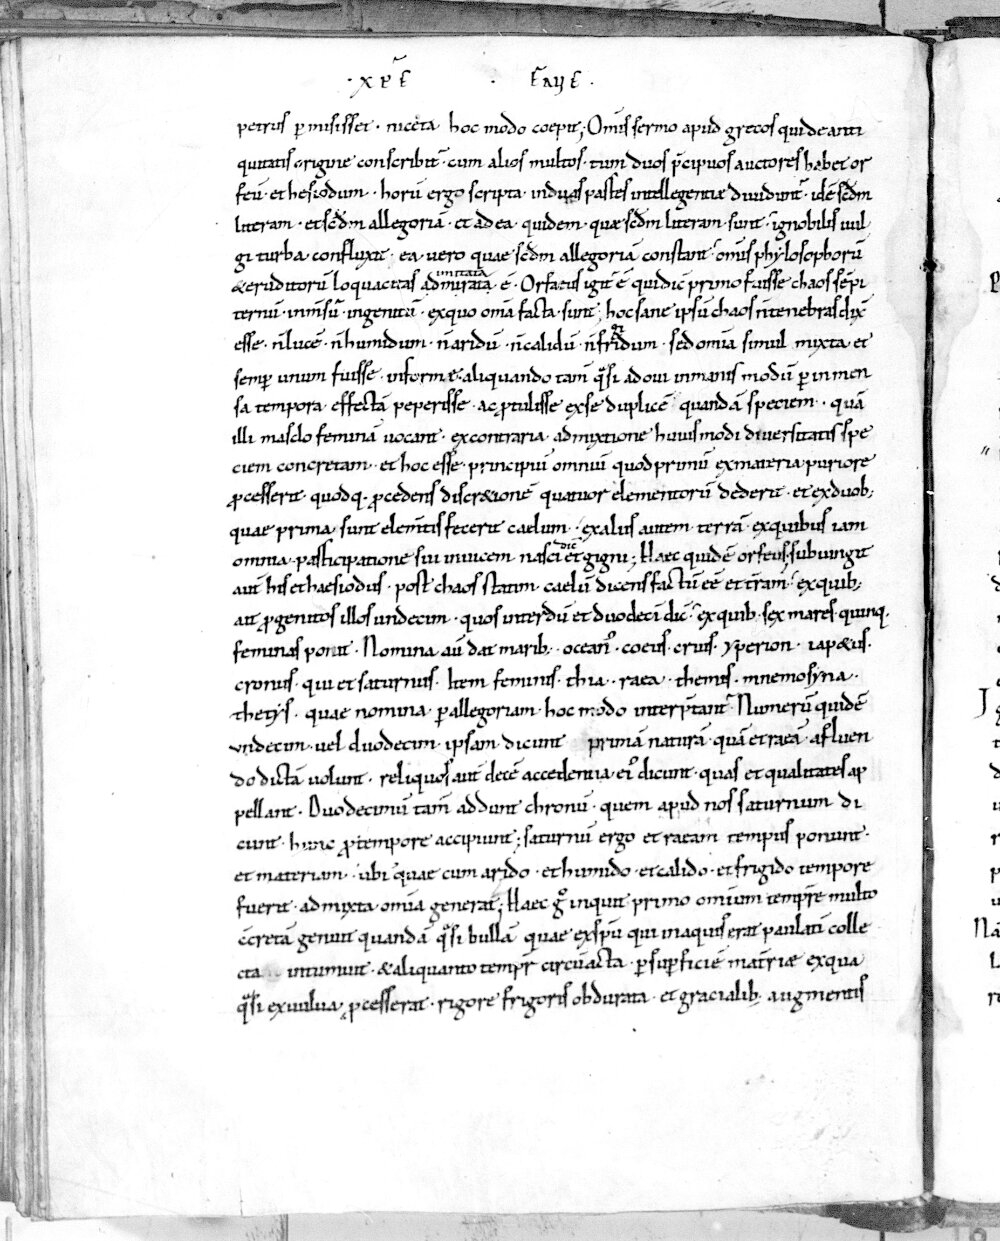 · xp̄e · ēaye ·
petrus ꝑmisisset · niceta hoc modo coepit; Om̄is sermo apud grecos qui de anti
quitatis origine conscribit̄ · cum alios multos · tum duos p̄cipuos auctores habet or
feū · et hesiodum · horū ergo scripta · in duas partes intellegentiae dividunt̄ · id ē sc̄dm
litteram · et sc̄dm allegoriā · et ad ea quidem · quae sc̄dm litteram · sunt · ignobilis uul
gi turba confluxit · ea uero quae sc̄dm allegoriā constant · om̄is phylosophorū
& eruditorū loquacitas admirata imitata ē · Orfaeus igit̄ ē qui dic̄ primo fuisse chaos sēpi
ternū · inm̄sū · ingenitū · ex quo om̄a facta sunt; hoc sane ipsū chaos n̄ tenebras dix̄
esse · n̄ lucē · n̄ humidum · n̄ aridū · n̄ calidū · n̄ fridum gi · sed om̄ia simul mixta et
semꝑ unum fuisse · informe · aliquando tam̄ q̄si ad oui inmanis modū ꝑ inmen
sa tempora effectā peperisse · ac ꝓtulisse ex se duplicē quandā speciem · quā
illi masclo feminā uocant · ex contraria admixtione huiusmodi diuersitatis spe
ciem concretam · et hoc esse principiū omniū quod primū ex materia puriore
ꝓcesserit · quodq· ꝓcedens discr&ionē quatuor elementorū dederit · et ex duob;
quae prima sunt elem̄tis fecerit caelum · ex aliis autem terrā · ex quibus iam
omnia participatione sui inuicem nasci et gigni dic̄; Haec quidē orfeus · subiungit
aut his et haesiodus · post chaos statim caelū dicens factū eē et t̄ram · ex quib;
ait ꝓgenitos illos undecim · quos interdū et duodeci dic̄ · ex quib· sex mares quinq·
feminas ponit · Nomina aū dat marib· · ocean᾿ · coeus · crius · yperion · iap&us ·
cronus · qui et saturnus · Item feminis · thia · raea · themis · mnemosyna ·
thetys · quae nomina ꝑ allegoriam · hoc modo interp̄tant̄ · Numerū quidē
undecim · uel duodecim · ipsam dicunt primā naturā quā et raeā · a fluen
do dictā uolunt · reliquos aut̄ decē accedentia ei᾿ dicunt · quas et qualitates ap
pellant · Duodecimū tam̄ addunt chronū · quem apud nos saturnum di
cunt · hunc ꝓ tempore accipiunt; saturnū ergo et raeam tempus ponunt ·
et materiam · ubi quae cum arido · et humido · et calido · et frigido tempore
fuerit · admixta om̄ia generat; Haec g̊ inquit primo omnium temp̄re multo
c̄cretā genuit quandā q̄si bullā quae ex sp̄u qui in aquis erat paulati colle
cta intumuit · & aliquanto temp̄r circūacta · ꝑ suꝑficiē mat̄riae ex qua
q̄si ex uulua ꝓcesserat · rigore frigoris obdurata · et gracialib· augmentis